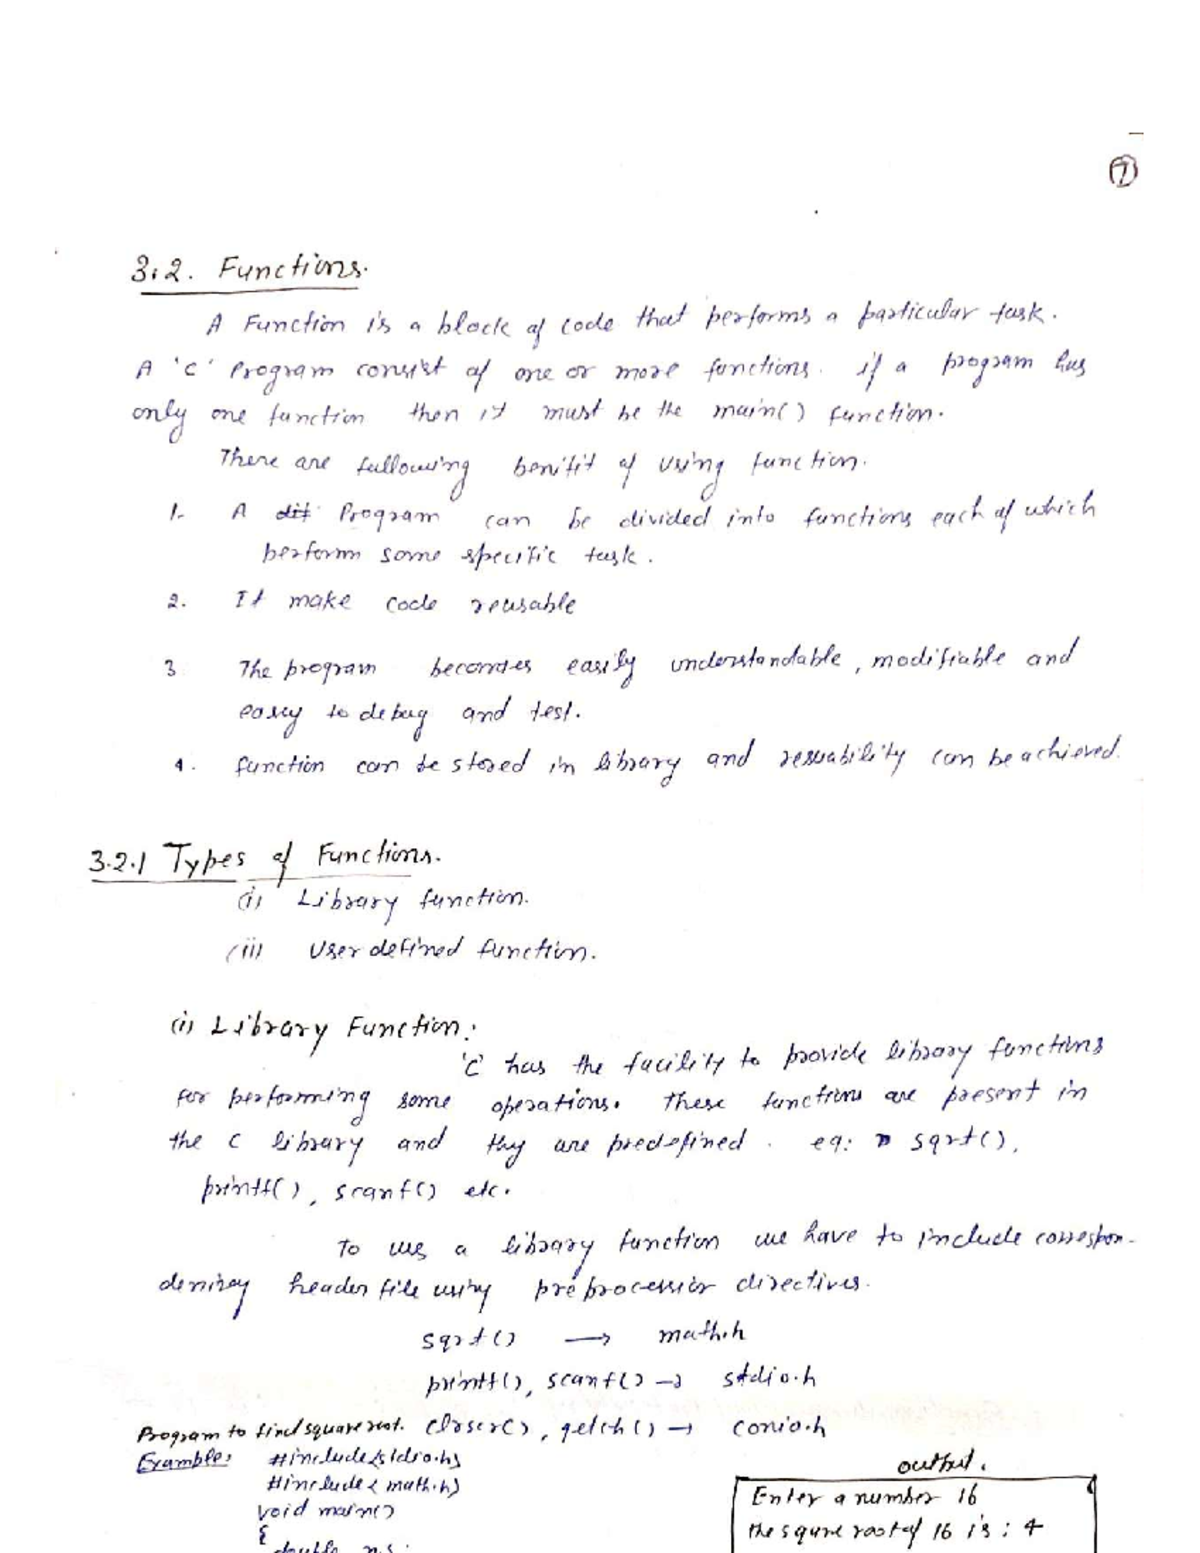 7
3.2. Functions.
A Function is a block of code that performs a particular task.
A 'C' Program consist of one or more functions. if a program has
only one function then it must be the main() function.
There are following benifit of using function.
1. A dif Program can be divided into functions each of which
perform some specific task.
2. It make code reusable
3. The program becomes easily understandable, modifiable and
easy to debug and test.
4. function can be stored in library and resuability can be achieved.
3.2.1 Types of Functions.
(i) Library function.
(ii) User defined function.
(i) Library Function:
'C' has the facility to provide library functions
for performing some operations. These functions are present in
the C library and thy are predefined. eg: sqrt(),
printf(), scanf() etc.
To use a library function we have to include correspon-
header file using preprocessor directives.
sqrt() → math.h
printf(), scanf() → stdio.h
Program to find square root. clrscr(), getch() → conio.h
Example: #include<stdio.h>
#include<math.h>
void main()
{
double n,s;
output.
Enter a number 16
the squre root of 16 is: 4